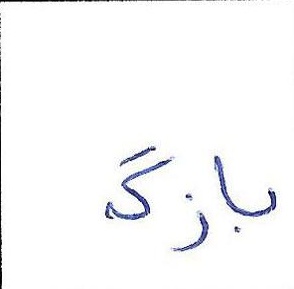 بازگ